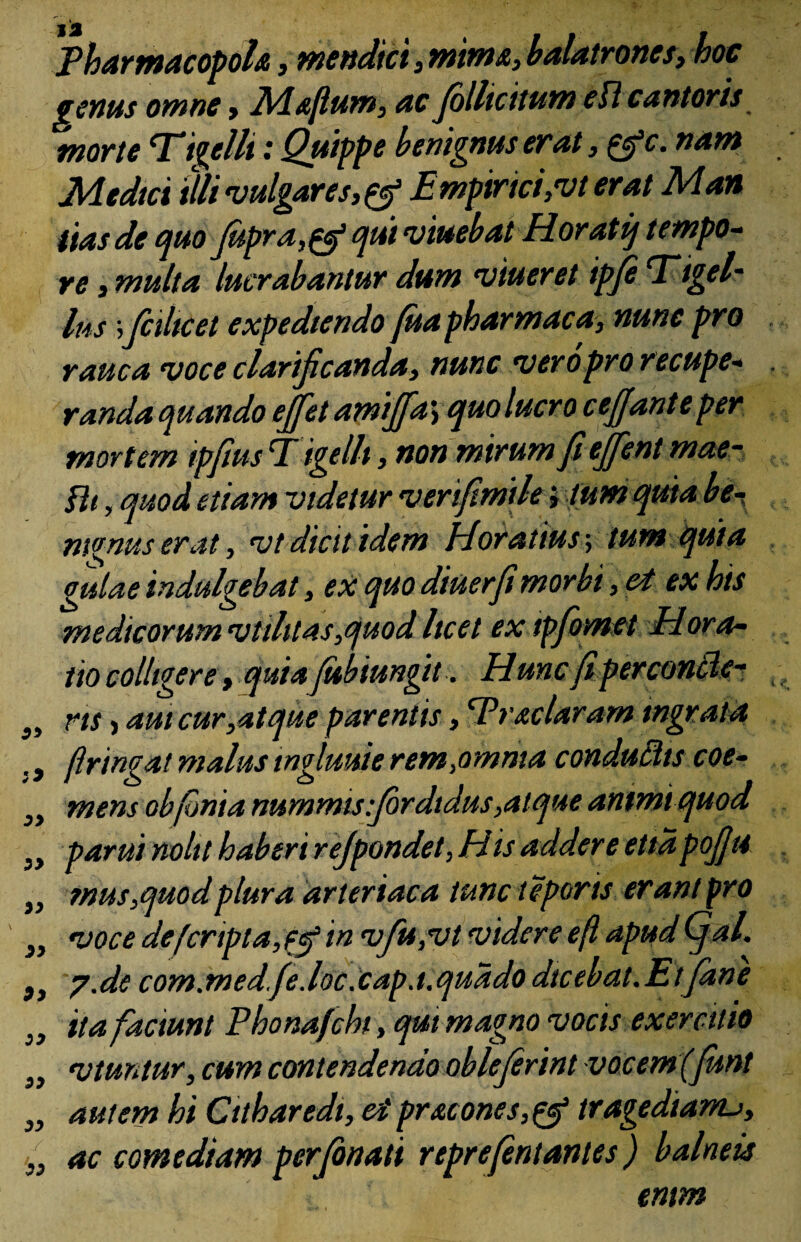 12
Pharmacopolæ, mendici, mimæ, balatrones, hoc
genus omne, Mæſtum, ac ſollicitum eſt cantoris
morte Tigelli: Quippe benignus erat, &c. nam
Medici illi vulgares, & Empirici, vt erat Man
tias de quo ſupra, & qui viuebat Horatij tempo-
re, multa lucrabantur dum viueret ipſe Tigel-
lus; ſcilicet expediendo ſua pharmaca, nunc pro
rauca voce clarificanda, nunc verò pro recupe-
randa quando eſſet amiſſa; quo lucro ceſſante per
mortem ipſius Tigelli, non mirum ſi eſſent mae-
ſti, quod etiam videtur veriſimile; tum quia be-
nignus erat, vt dicit idem Horatius; tum quia
gulae indulgebat, ex quo diuerſi morbi, et ex his
medicorum vtilitas, quod licet ex ipſomet Hora-
tio colligere, quia ſubiungit. Hunc ſi perconcte-
„ ris, aut cur, atque parentis, Præclaram ingrata
„ ſtringat malus ingluuie rem, omnia conductis coe-
„ mens obſonia nummis: ſordidus, atque animi quod
„ parui nolit haberi reſpondet, His addere etiã poſſu
„ mus, quod plura arteriaca tunc tẽporis erant pro
„ voce deſcripta, & in vſu, vt videre eſt apud Gal.
„ 7. de com. med. ſe. loc. cap. 1. quãdo dicebat. Et ſanè
„ ita faciunt Phonaſchi, qui magno vocis exercitio
„ vtuntur, cum contendendo obleſerint vocem (ſunt
„ autem hi Citharedi, et præcones, & tragediam,
„ ac comediam perſonati repreſentantes) balneis
enim